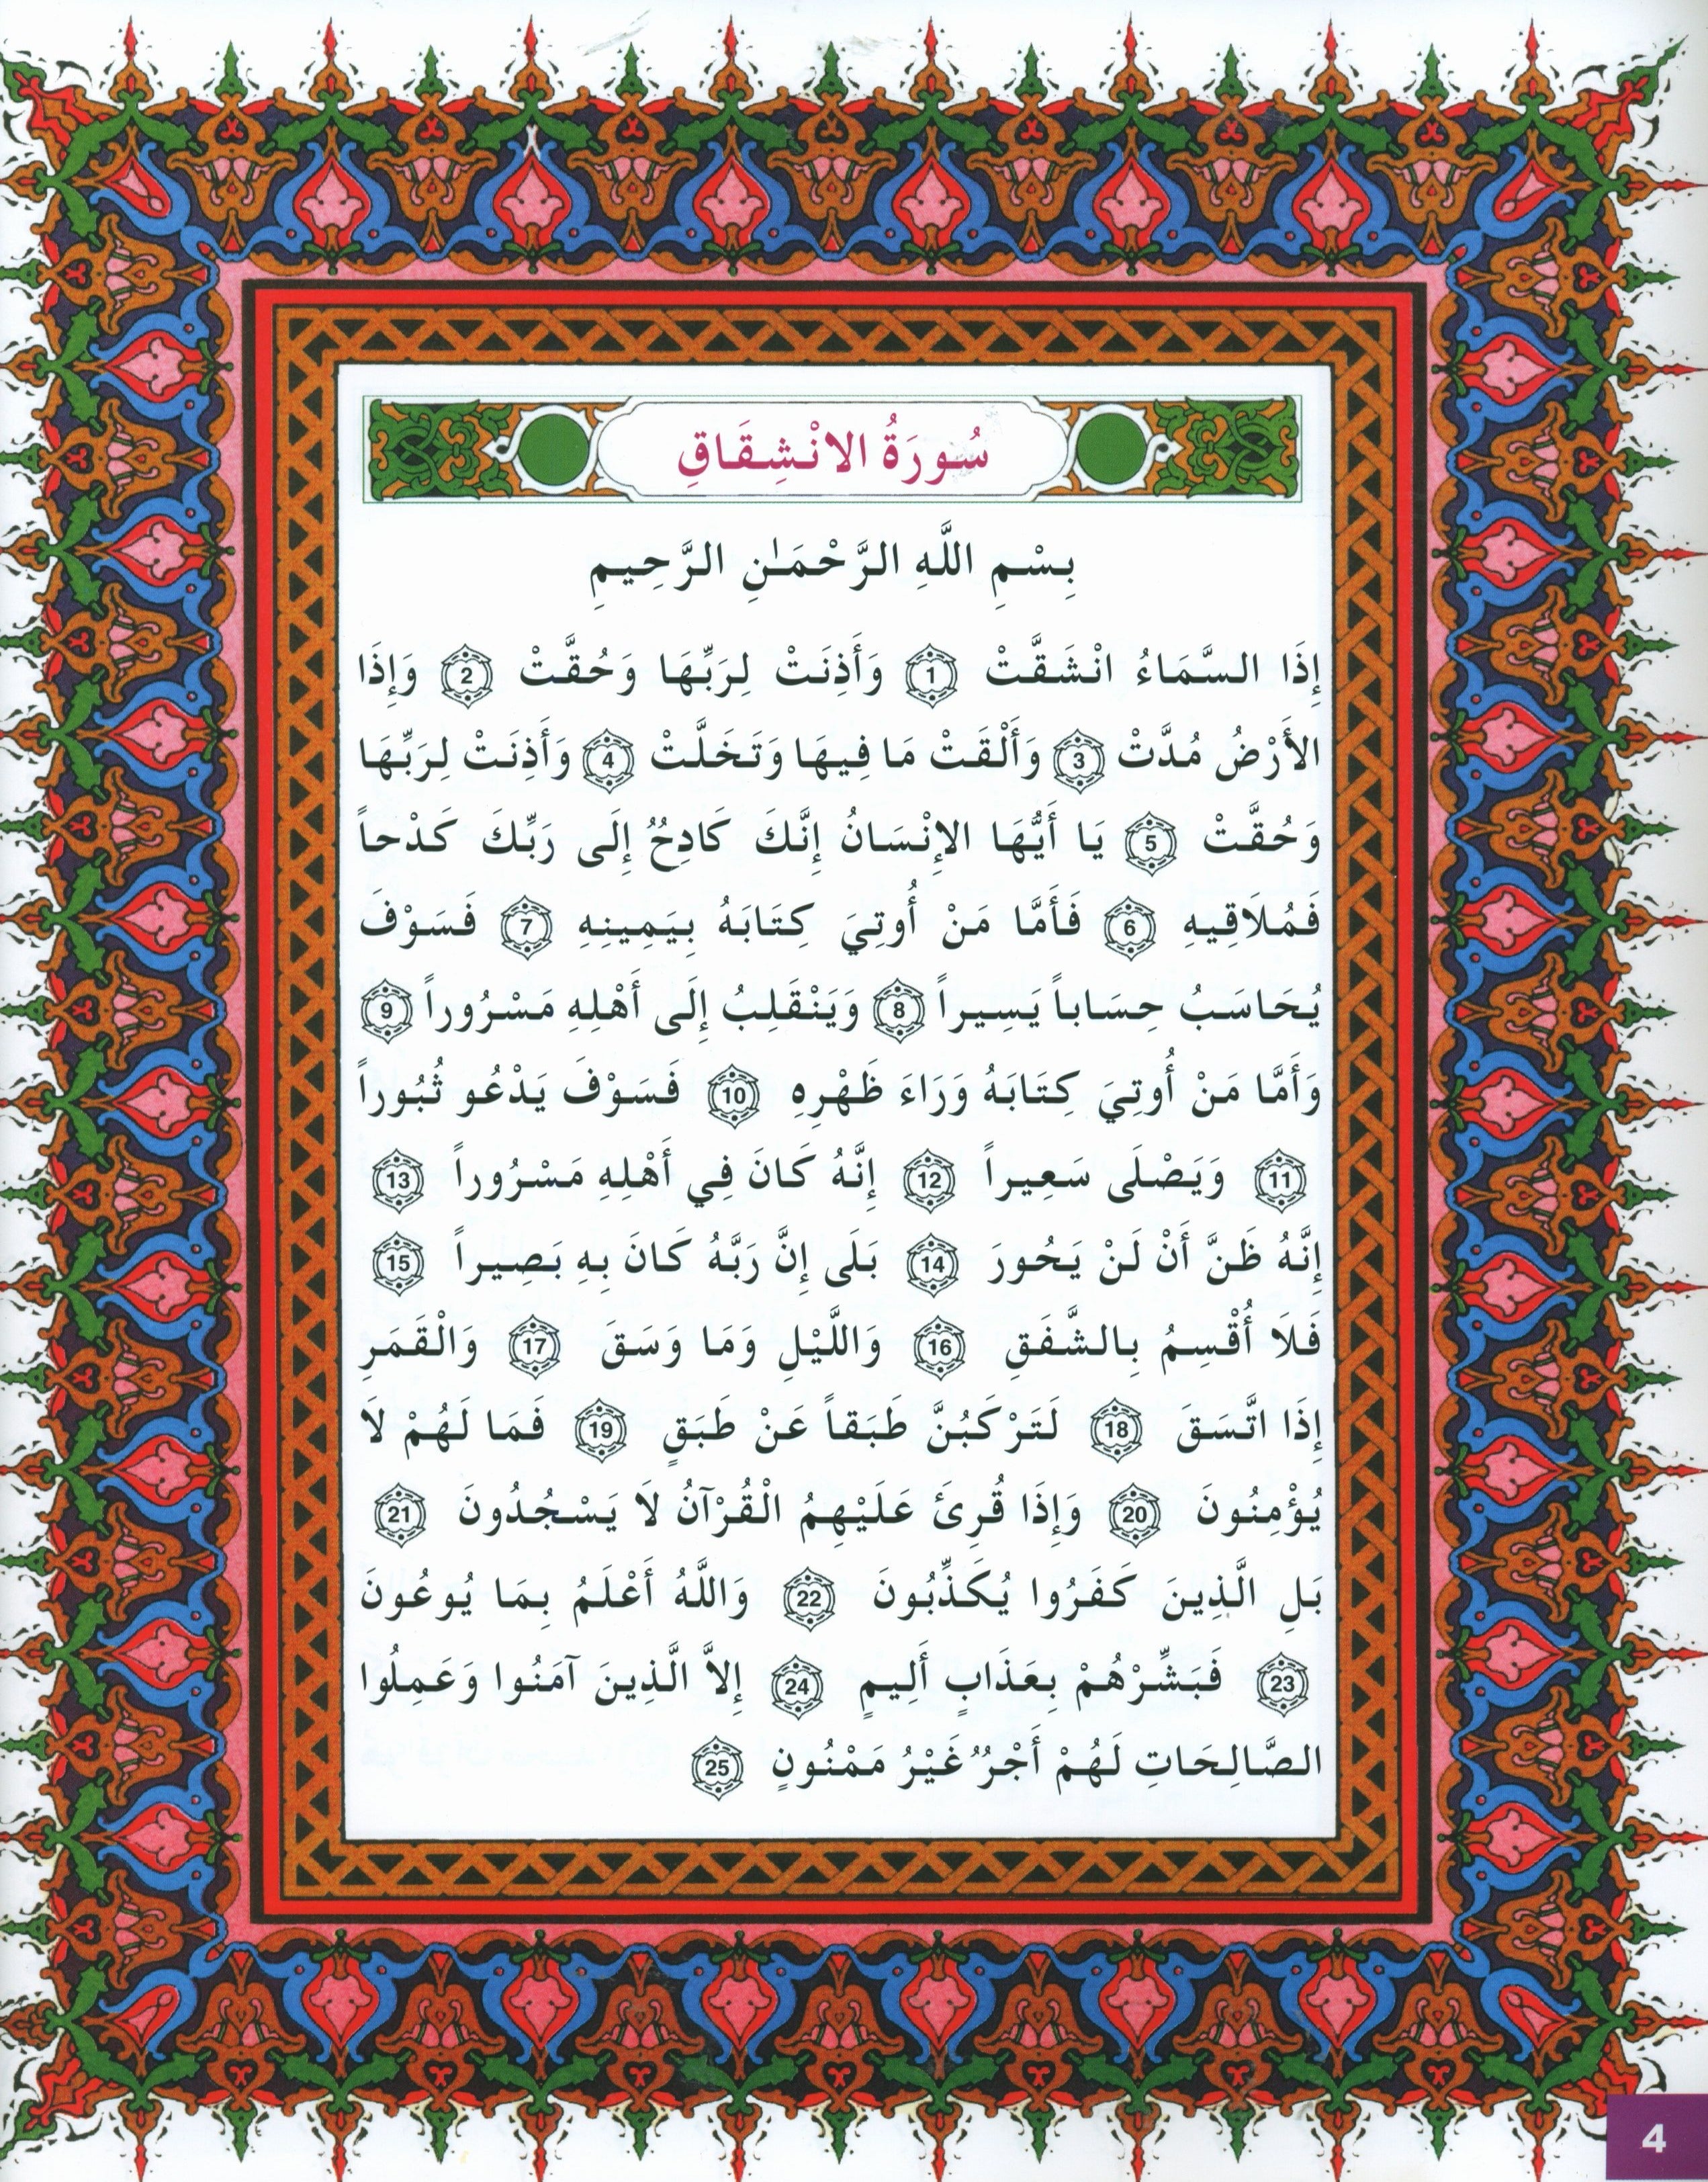 سُورَةُ الانْشِقَاقِ
بِسْمِ اللَّهِ الرَّحْمَـٰنِ الرَّحِيمِ
إِذَا السَّمَاءُ انْشَقَّتْ 1 وَأَذِنَتْ لِرَبِّهَا وَحُقَّتْ 2 وَإِذَا
الأَرْضُ مُدَّتْ 3 وَأَلْقَتْ مَا فِيهَا وَتَخَلَّتْ 4 وَأَذِنَتْ لِرَبِّهَا
وَحُقَّتْ 5 يَا أَيُّهَا الإِنْسَانُ إِنَّكَ كَادِحٌ إِلَى رَبِّكَ كَدْحاً
فَمُلاَقِيهِ 6 فَأَمَّا مَنْ أُوتِيَ كِتَابَهُ بِيَمِينِهِ 7 فَسَوْفَ
يُحَاسَبُ حِسَاباً يَسِيراً 8 وَيَنْقَلِبُ إِلَى أَهْلِهِ مَسْرُوراً 9
وَأَمَّا مَنْ أُوتِيَ كِتَابَهُ وَرَاءَ ظَهْرِهِ 10 فَسَوْفَ يَدْعُو ثُبُوراً
11 وَيَصْلَى سَعِيراً 12 إِنَّهُ كَانَ فِي أَهْلِهِ مَسْرُوراً 13
إِنَّهُ ظَنَّ أَنْ لَنْ يَحُورَ 14 بَلَى إِنَّ رَبَّهُ كَانَ بِهِ بَصِيراً 15
فَلاَ أُقْسِمُ بِالشَّفَقِ 16 وَاللَّيْلِ وَمَا وَسَقَ 17 وَالْقَمَرِ
إِذَا اتَّسَقَ 18 لَتَرْكَبُنَّ طَبَقاً عَنْ طَبَقٍ 19 فَمَا لَهُمْ لاَ
يُؤْمِنُونَ 20 وَإِذَا قُرِئَ عَلَيْهِمُ الْقُرْآنُ لاَ يَسْجُدُونَ 21
بَلِ الَّذِينَ كَفَرُوا يُكَذِّبُونَ 22 وَاللَّهُ أَعْلَمُ بِمَا يُوعُونَ
23 فَبَشِّرْهُمْ بِعَذَابٍ أَلِيمٍ 24 إِلاَّ الَّذِينَ آمَنُوا وَعَمِلُوا
الصَّالِحَاتِ لَهُمْ أَجْرٌ غَيْرُ مَمْنُونٍ 25
4